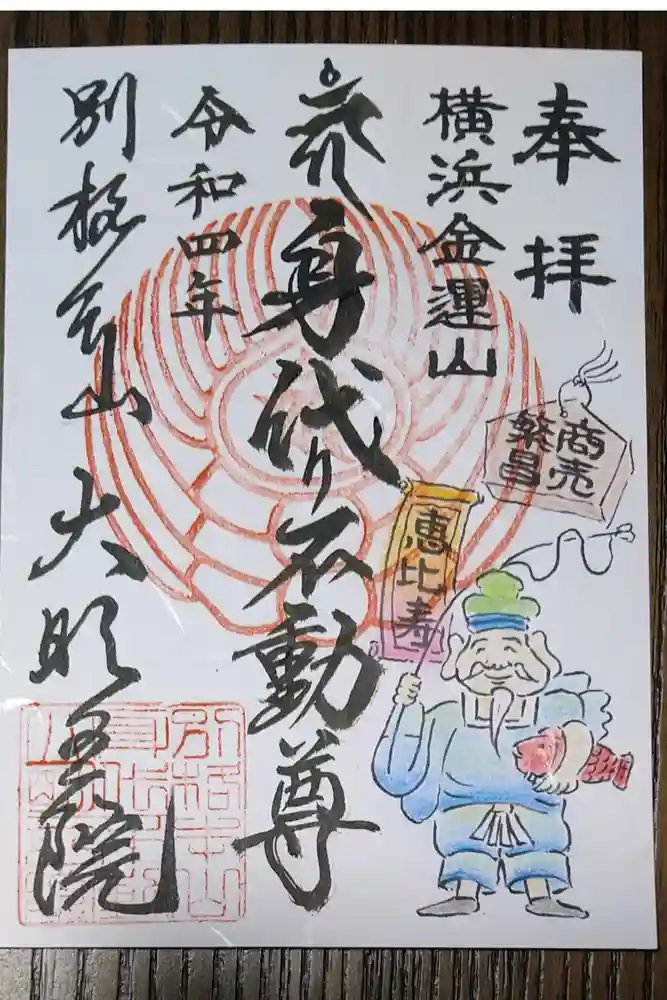 奉拝
横浜金運山
商売
繁昌
恵比寿
身代り不動尊
令和四年
別格本山 大明王院